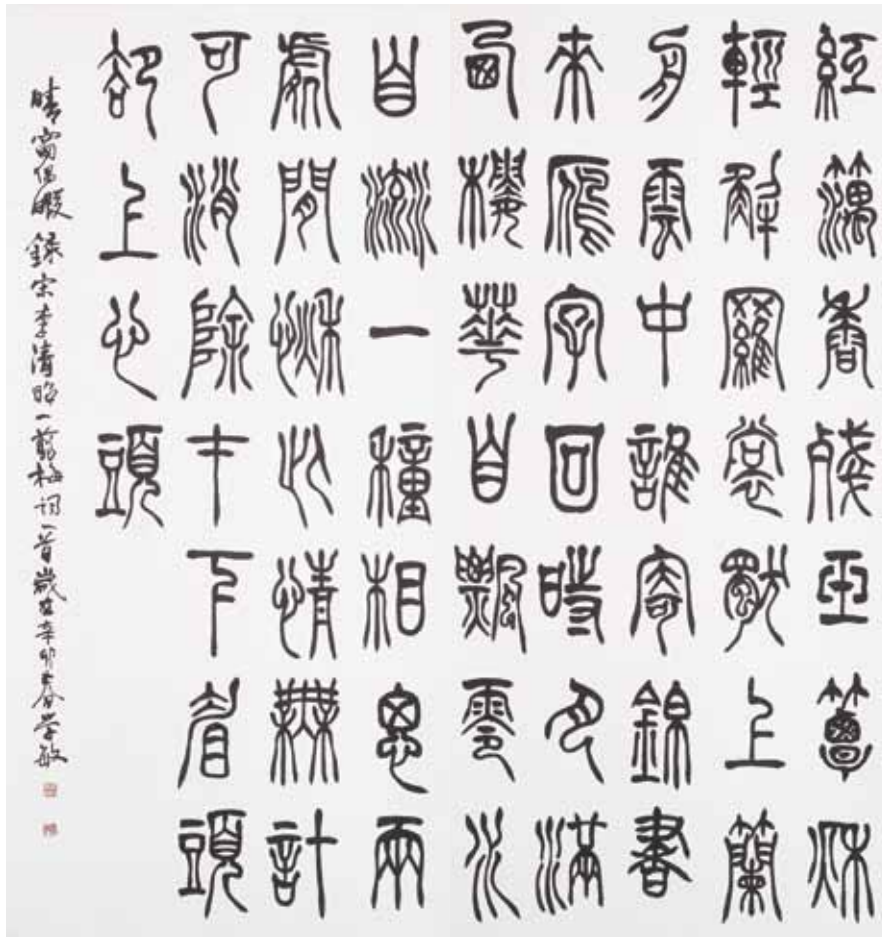 紅藕香殘玉簟秋
輕解羅裳獨上蘭
舟雲中誰寄錦書
來雁字回時月滿
西樓華自飄零水
自流一種相思兩
處閒愁此情無計
可消除才下眉頭
卻上心頭
晴窗偶暇錄宋李清照一剪梅詞一首歲在辛卯春学敏